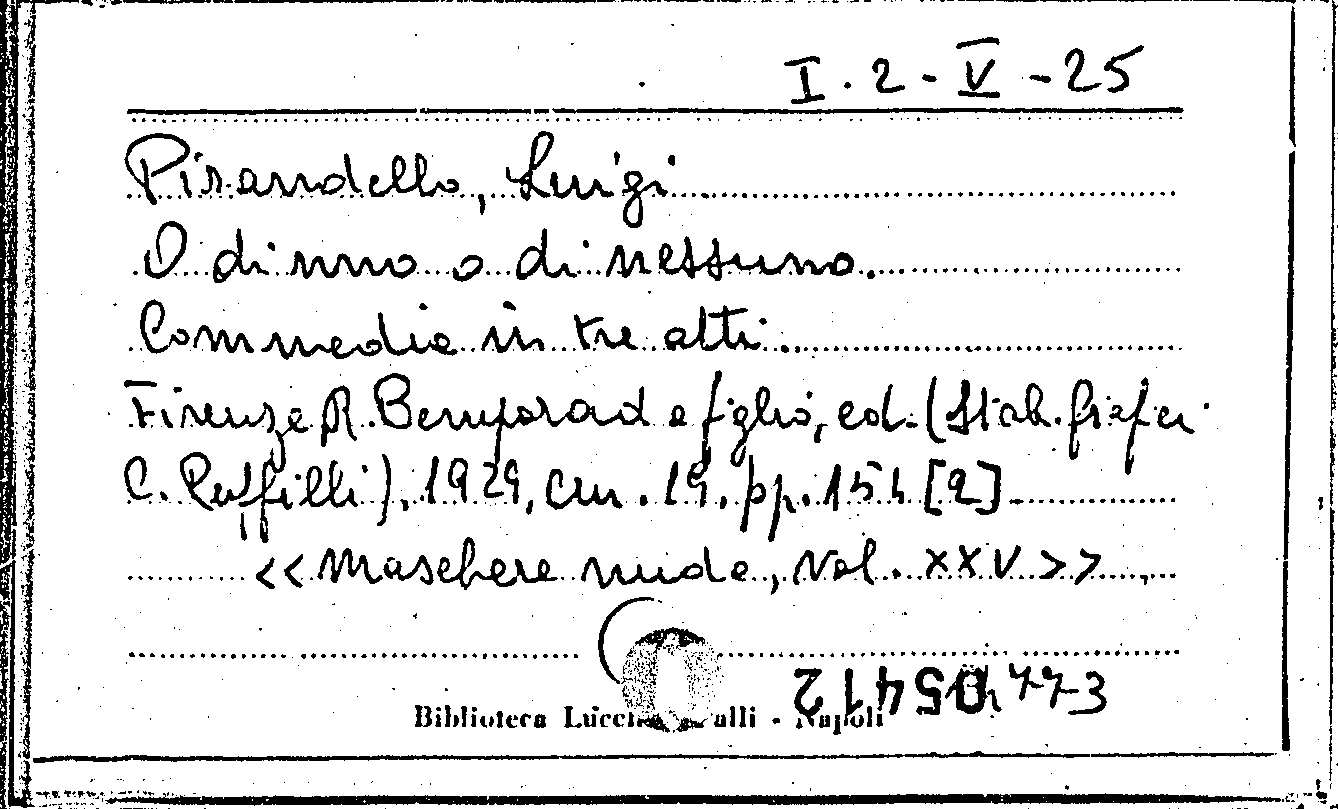 I. 2 - V - 25
Pirandello, Luigi
O di uno o di nessuno.
Commedia in tre atti.
Firenze R. Bemporad e figlio, ed. (Stab. grafici
C. Ruffilli), 1929, cm. 19, pp. 154 [2].
<<Maschere nude, vol. XXV>>
Biblioteca Lucchesi Palli - Napoli